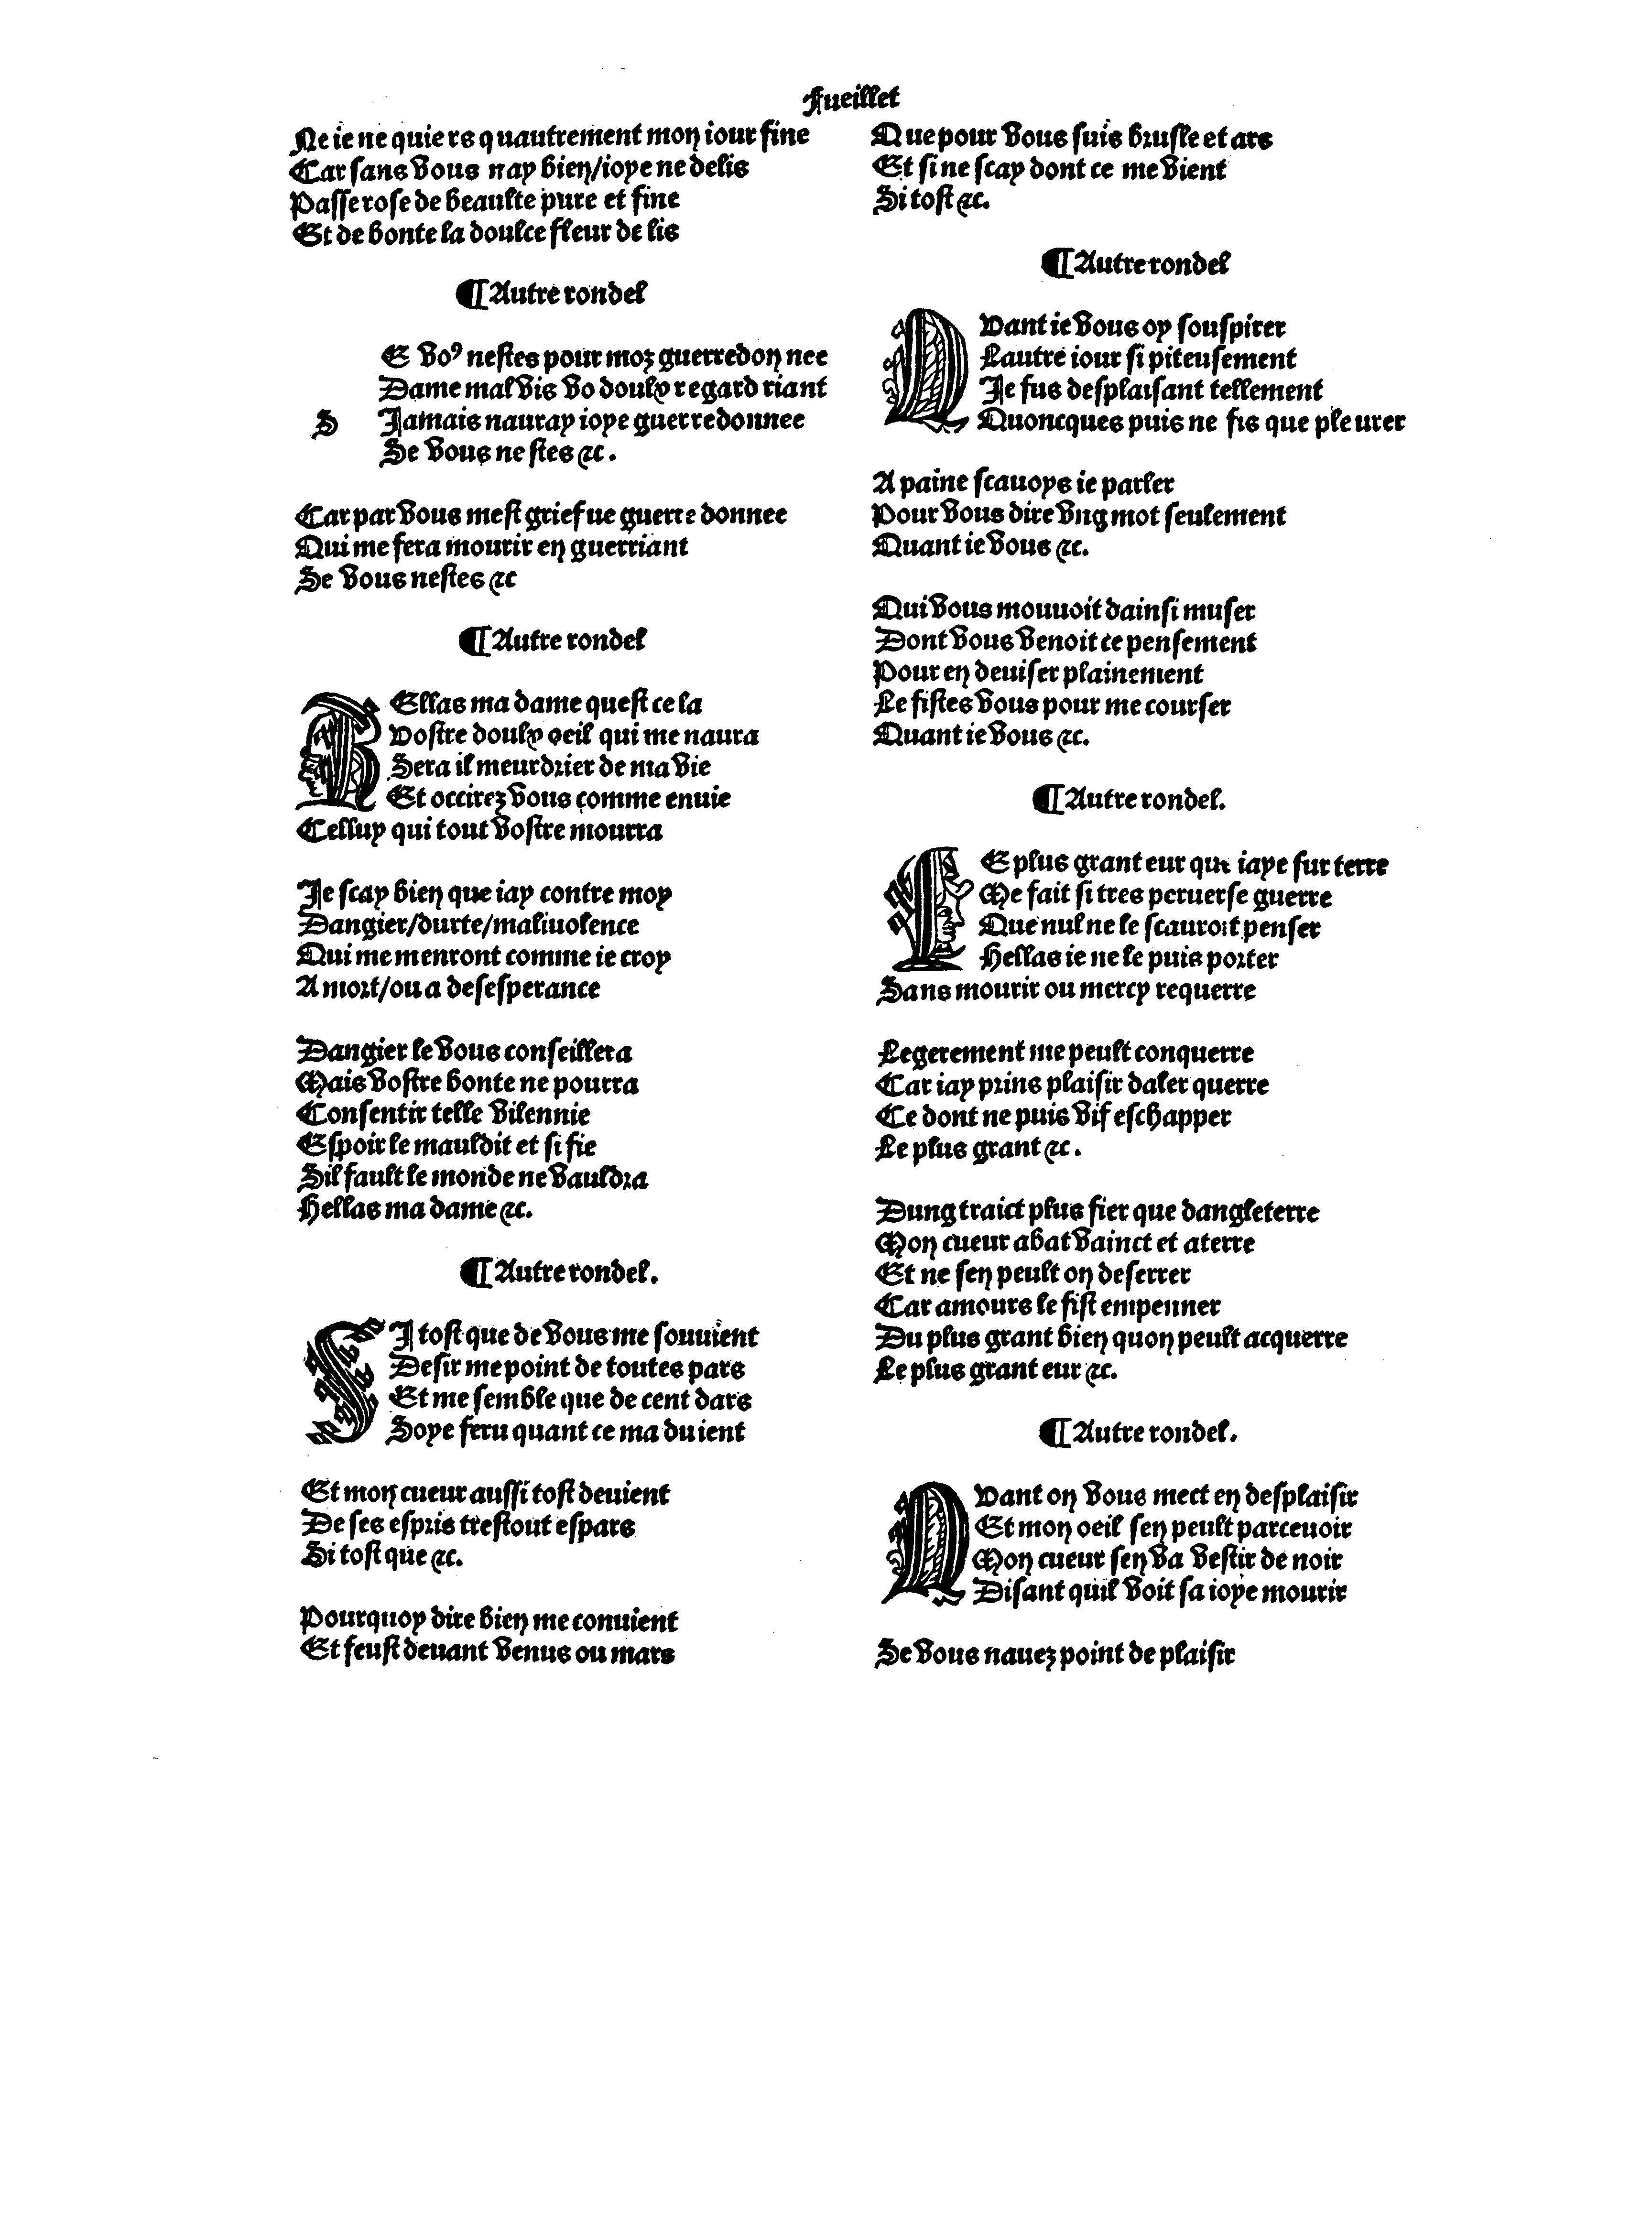 Fueillet
Ne ie ne quiers quautrement mon iour fine
Car sans vous nay bien/ioye ne delis
Passe rose de beaulte pure et fine
Et de bonte la doulce fleur de lis
¶Autre rondel
SE voꝰ nestes pour moy guerredonnee
Dame mal vis vo doulx regard riant
Jamais nauray ioye guerredonnee
Se vous nestes ⁊c.
Car par vous mest griefue guerre donnee
Qui me fera mourir en guerriant
Se vous nestes ⁊c
¶Autre rondel
HEllas ma dame quest ce la
Vostre doulx oeil qui me naura
Sera il meurdrier de ma vie
Et occirez vous comme enuie
Celluy qui tout vostre mourra
Je scay bien que iay contre moy
Dangier/durte/maliuolence
Qui me menront comme ie croy
A mort/ou a desesperance
Dangier le vous conseillera
Mais vostre bonte ne pourra
Consentir telle vilennie
Espoir le mauldit et si fie
Sil fault le monde ne vauldra
Hellas ma dame ⁊c.
¶Autre rondel.
SI tost que de vous me souuient
Desir me point de toutes pars
Et me semble que de cent dars
Soye feru quant ce ma duient
Et mon cueur aussi tost deuient
De ses espris trestout espars
Si tost que ⁊c.
Pourquoy dire bien me conuient
Et feust deuant venus ou mars
Que pour vous suis brusle et ars
Et si ne scay dont ce me vient
Si tost ⁊c.
¶Autre rondel
QVant ie vous oy souspirer
Lautre iour si piteusement
Je fus desplaisant tellement
Quoncques puis ne fis que pleurer
A paine scauoys ie parler
Pour vous dire vng mot seulement
Quant ie vous ⁊c.
Qui vous mouuoit dainsi muser
Dont vous venoit ce pensement
Pour en deuiser plainement
Le fistes vous pour me courser
Quant ie vous ⁊c.
¶Autre rondel.
LE plus grant eur que iaye sur terre
Me fait si tres peruerse guerre
Que nul ne le scauroit penser
Hellas ie ne le puis porter
Sans mourir ou mercy requerre
Legerement me peult conquerre
Car iay prins plaisir daler querre
Ce dont ne puis vif eschapper
Le plus grant ⁊c.
Dung traict plus fier que dangleterre
Mon cueur abat vainct et aterre
Et ne sen peult on deserrer
Car amours le fist empenner
Du plus grant bien quon peult acquerre
Le plus grant eur ⁊c.
¶Autre rondel.
QVant on vous mect en desplaisir
Et mon oeil sen peult parceuoir
Mon cueur sen va vestir de noir
Disant quil voit sa ioye mourir
Se vous nauez point de plaisir